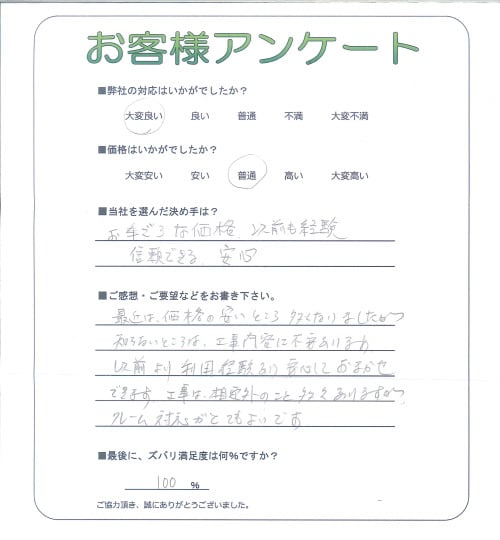 お客様アンケート
■弊社の対応はいかがでしたか？
大変良い 良い 普通 不満 大変不満
■価格はいかがでしたか？
大変安い 安い 普通 高い 大変高い
■当社を選んだ決め手は？
お手ごろな価格、以前も経験
信頼できる、安心
■ご感想・ご要望などをお書き下さい。
最近は、価格の安いところ多くなりましたが
知らないところは、工事内容に不安あります
以前より利用経験あり安心しておまかせ
できます、工事は、想定外のこと多々ありますが
クレーム対応がとてもよいです
■最後に、ズバリ満足度は何％ですか？
100 ％
ご協力頂き、誠にありがとうございました。